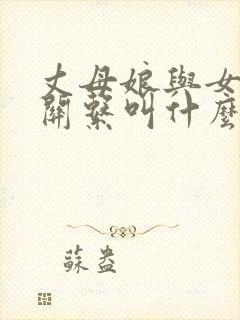 丈母娘與女
關繫叫什麼
蘇盎